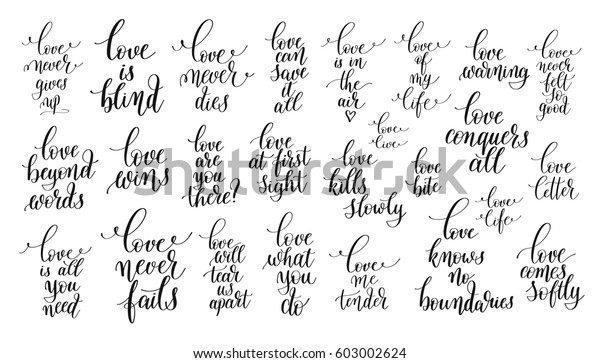 love
never
gives
up
love
is
blind
love
never
dies
love
can
save
it
all
love
is in
the
air
love
of
my
life
love
warning
love
never
felt
so
good
love
beyond
words
love
wins
love
are
you
there?
love
at first
sight
love
kills
slowly
love
live
love
bite
love
conquers
all
love
letter
love
life
love
is all
you
need
love
never
fails
love
will
tear
us
apart
love
what
you
do
love
me
tender
love
knows
no
boundaries
love
comes
softly
shutterstock
IMAGE ID: 603002624
www.shutterstock.com